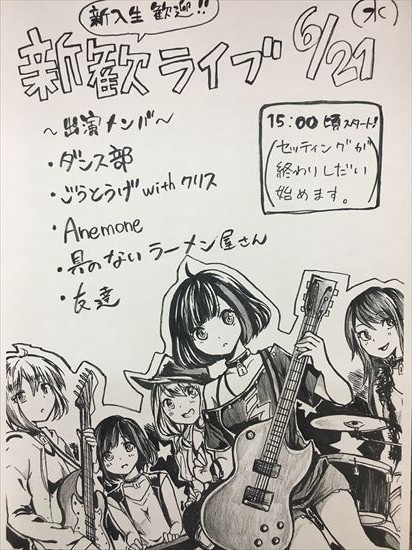 新入生歓迎!!
新歓ライブ 6/21 (水)
15:00頃スタート!
セッティングが
終わりしだい
始めます。
～出演メンバ～
・ダンス部
・ごうとうげwithクリス
・Anemone
・具のないラーメン屋さん
・友達